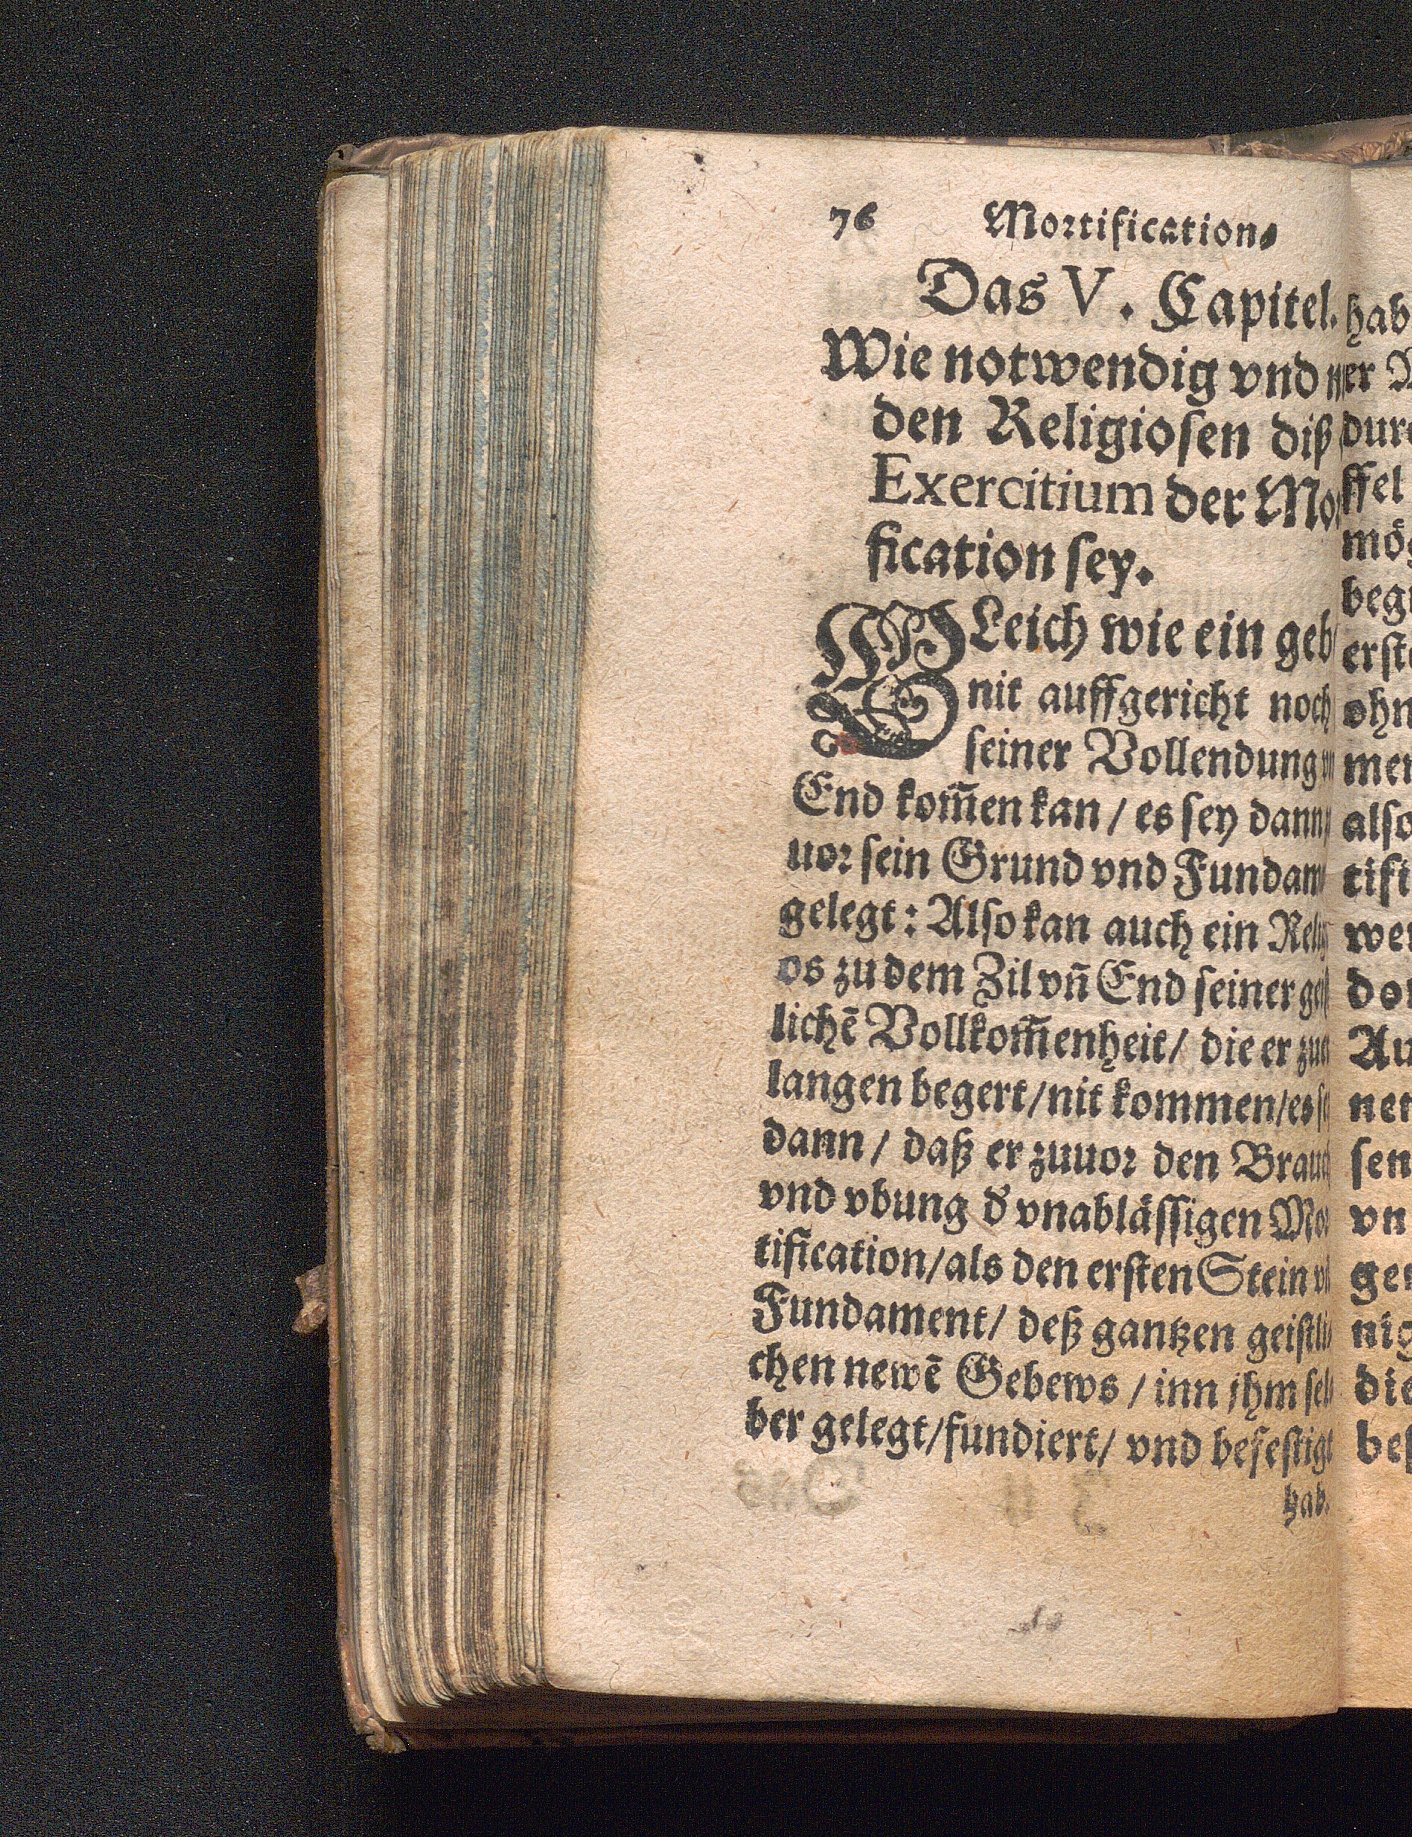 76 Mortification⸗
Das V. Capitel.
Wie notwendig vnd
den Religiosen diß
Exercitium der Mo
fication sey.
GLeich wie ein geb
nit auffgericht noch
seiner Vollendung
End kom̄en kan / es sey dann
uor sein Grund vnd Fundam
gelegt: Also kan auch ein Relig
os zu dem Zil vñ End seiner geist
lichẽ Vollkom̄enheit/ die er zu
langen begert/nit kommen/es
dann / daß er zuuor den Brauch
vnd vbung d' vnablässigen Mor
tification/als den ersten Stein
Fundament/ deß gantzen geistli
chen newẽ Gebews / inn jhm sel
ber gelegt/fundiert/ vnd befestigt
hab.
hab
er
dur
ffel
mög
beg
erst
ohn
men
also
tifi
wer

Au
ner
sen
vn
gen
nig
die
bes